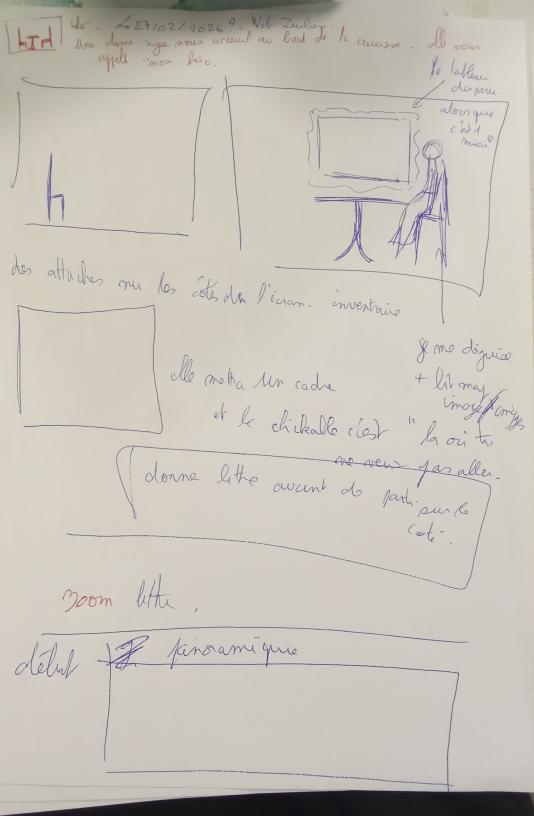 Le 27/02/2026? Web
une dame nous accueil au bord de la . elle nous
appelle "mon héro.
le tableau
disparu.
alorsque
c'est 1
miroir
des attaches sur les côtés de l'écran. inventaire
je me déguise
+ lit
image
elle mettra un cadre
et le clickable c'est "la où tu
ne veux pas aller.
donne lettre avant de partir
sur le
coté.
zoom lettre.
début panoramique